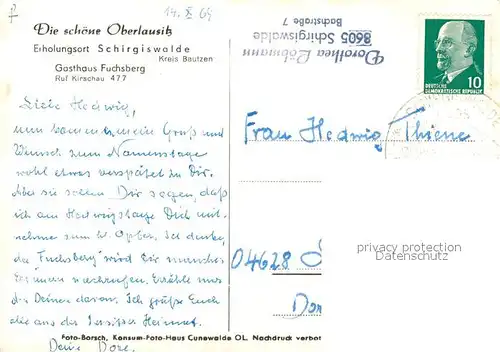 14. X 69
Die schöne Oberlausitz
Erholungsort Schirgiswalde
Kreis Bautzen
Gasthaus Fuchsberg
Ruf Kirschau 477
Dorothea Lößmann
8605 Schirgiswalde
Bachstraße 7
DEUTSCHE
DEMOKRATISCHE REPUBLIK
10
Liebe Hedwig,
nun kommen meine Grüße und
Wünsche zum Namenstage
wohl etwas verspätet zu Dir.
Aber sie sollen Dir sagen, daß
ich am Hedwigstage Dich mit-
nehme zum hl. Opfer. Ich denke,
der "Fuchsberg" wird Dir manches
Erinnern wachrufen. Erzähle uns
die Deinen davon. Ich grüße Euch
alle aus der Heimat.
Deine Dore.
Frau Hedwig Thiene
04628
privacy protection
Datenschutz
Foto-Borsch, Konsum-Foto-Haus Cunewalde OL. Nachdruck verbot